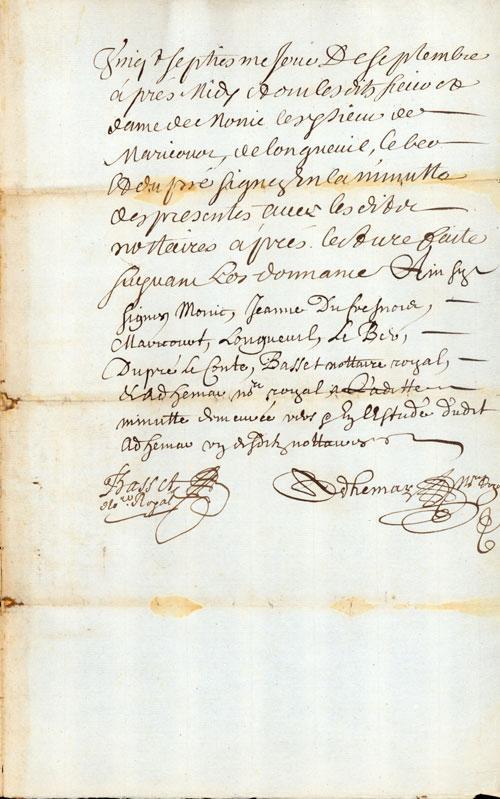 Vingt septiesme Jour De Septembre
après Midy et ont lesdits sieur et
dame de Monic les sieurs de
Maricour, de longueuil, le ber
Et dupré signez En la minutte
des presentes avec lesdits
nottaires après lecture faite
suivant Lordonnance Ainsy
signez Monic, Jeanne Dufresnoy,
Maricourt, Longueuil, Le Ber,
Dupré le Conte, Basset nottaire royal,
& adhemar nore royal a Laditte
minutte demeurée vers & En L'Estude dudit
adhemar un desdits nottaires
Basset
Nore Royal
Adhemar Nore